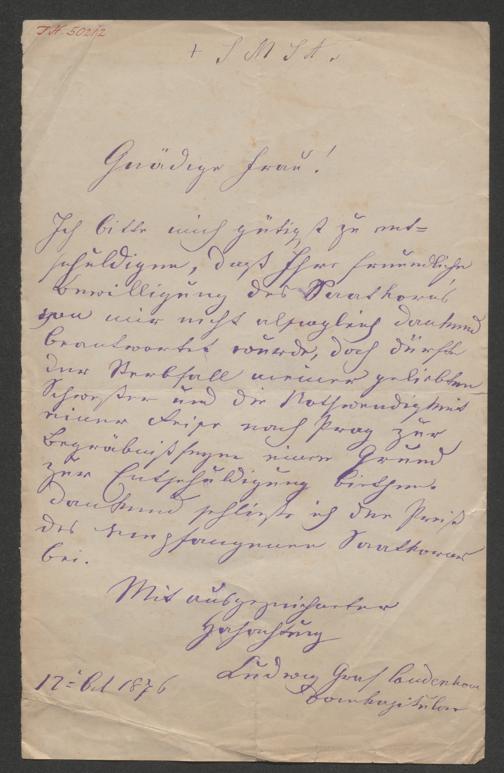 I.N. 50212
+ J M J A.
Gnädige Frau!
Ich bitte mich gütigst zu ent=
schuldigen, daß Ihre freundliche
Bewilligung des Saatkorns
von mir nicht alsogleich dankend
beantwortet wurde, doch dürfte
der Sterbfall meiner geliebten
Schwester und die Nothwendigkeit
einer Reise nach Prag zur
Begräbnißfeyer einen Grund
zur Entschuldigung biethen.
Dankend schließe ich den Preiß
des empfangenen Saatkornes
bei.
Mit ausgezeichneter
Hochachtung
Ludwig Graf
Domkapitular
12 Oct 1876